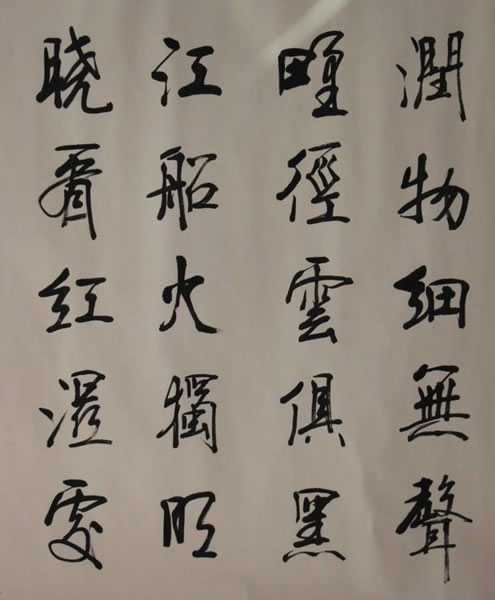 潤物細無聲
野徑雲俱黑
江船火獨明
晓看紅濕處